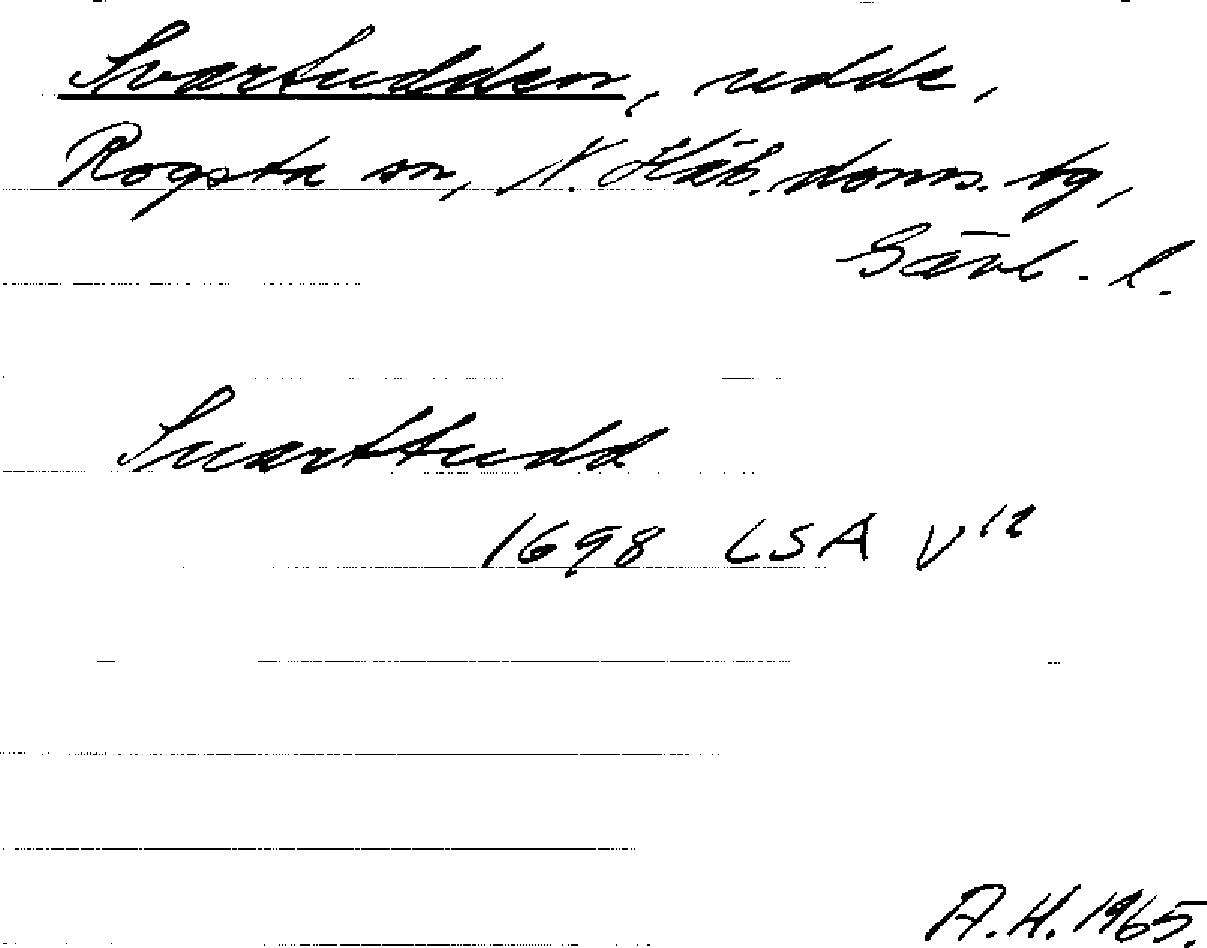 Svartudden, udde,
Rogsta sn, N. Häls. doms. tg,
Gävl. l.
Suarttudd
1698 LSA V¹²
A.H. 1965.